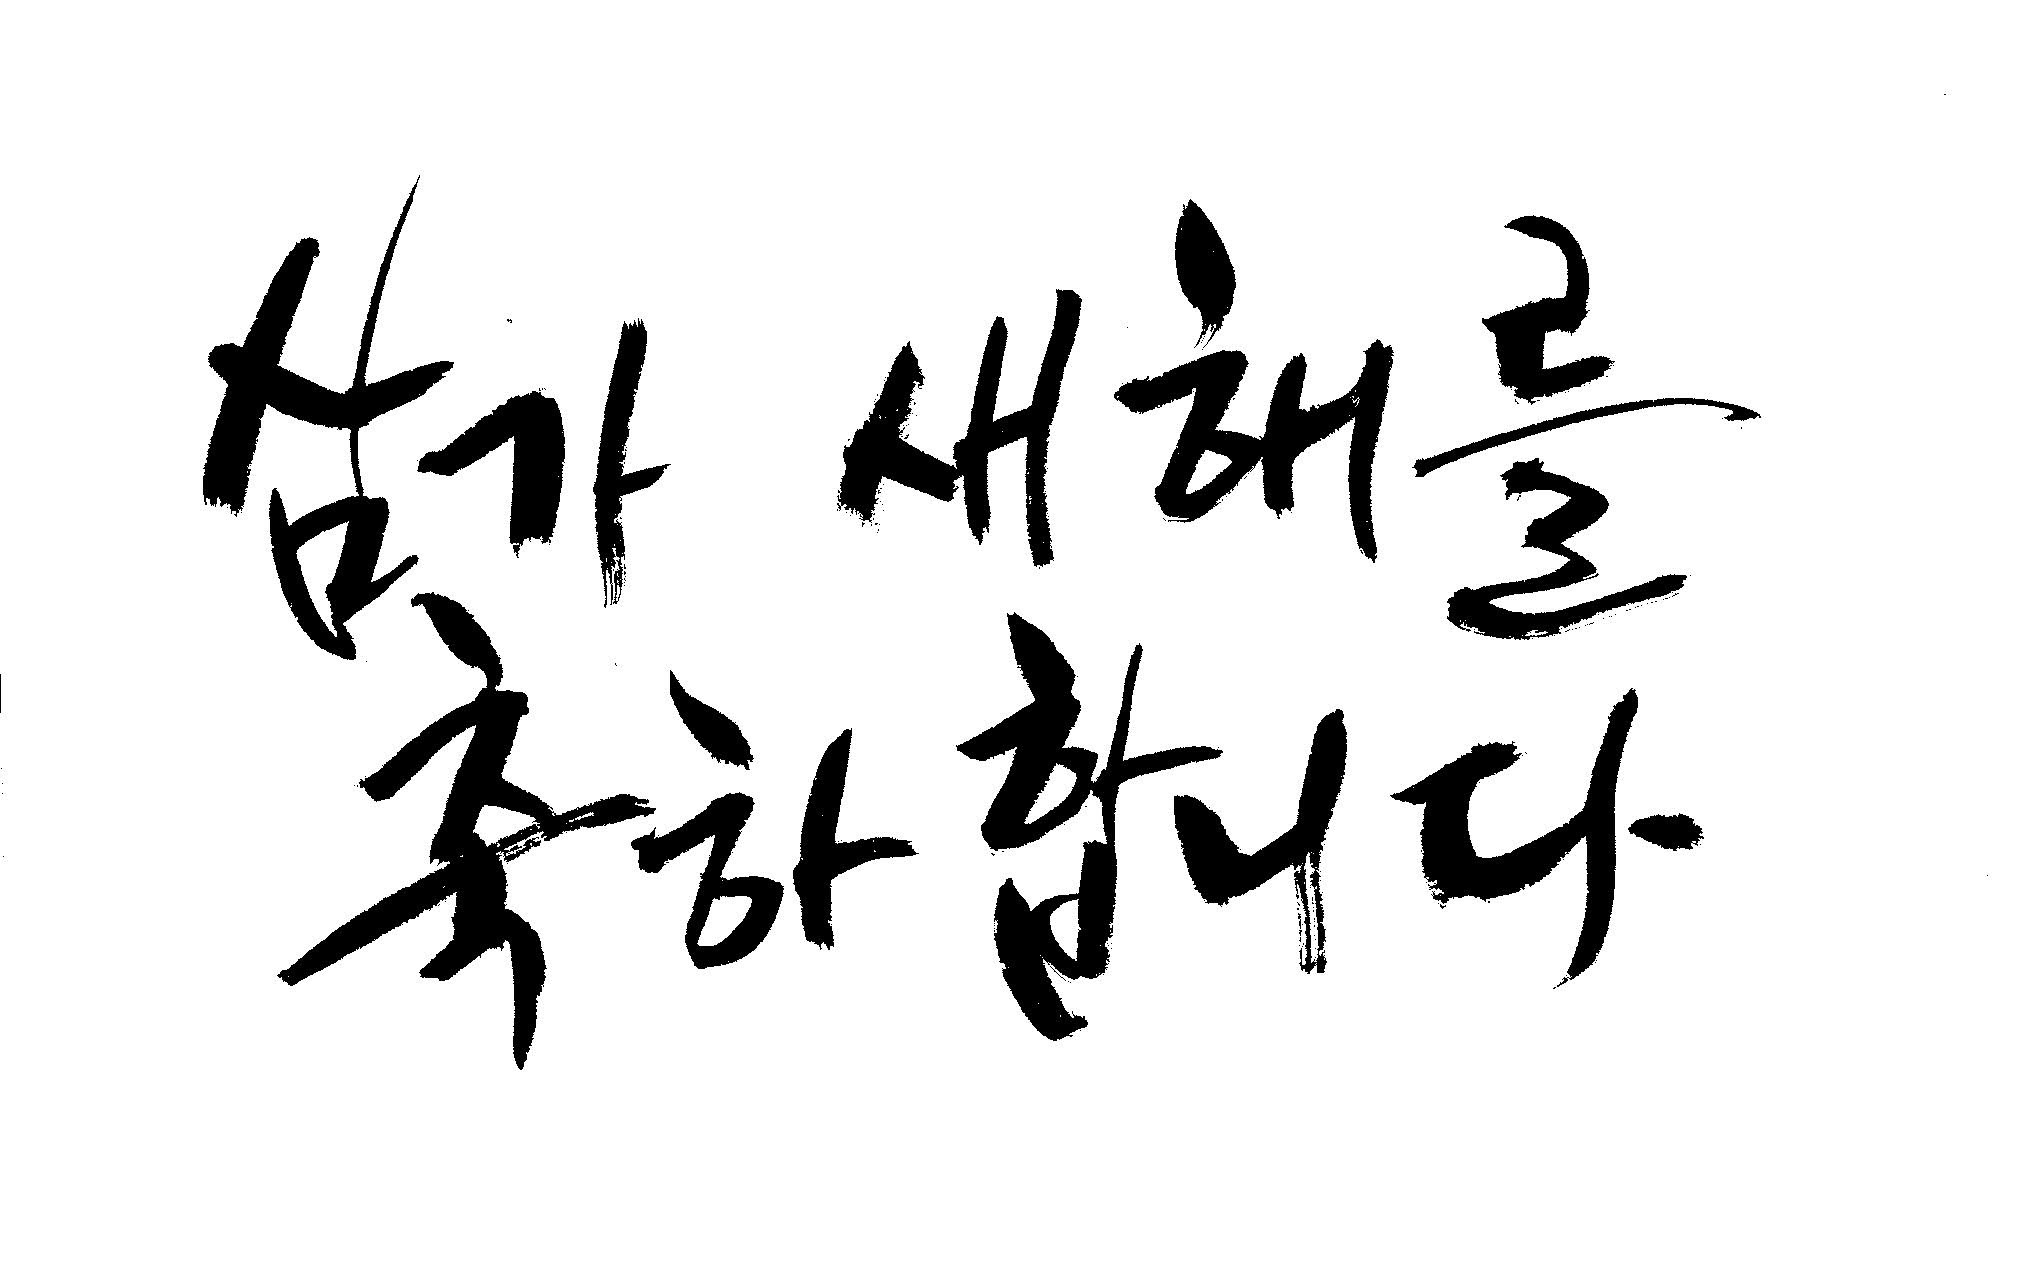 삼가 새해를
축하합니다